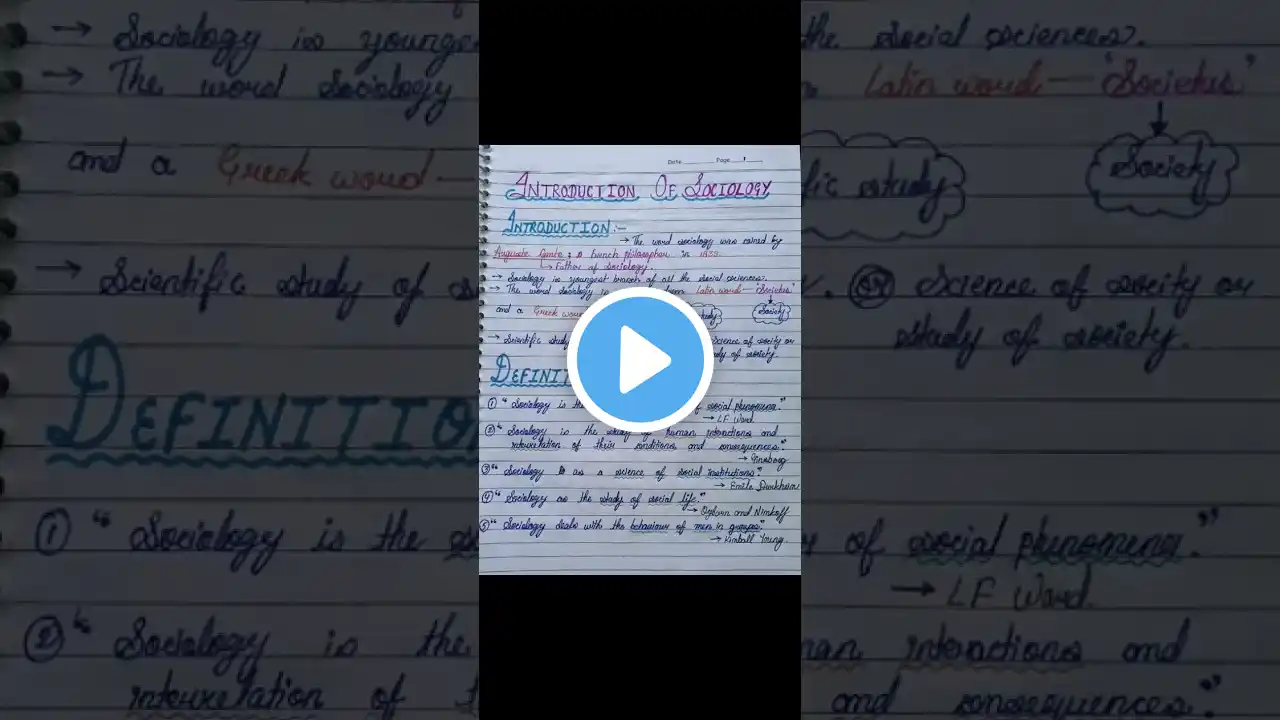 Date Page 1
INTRODUCTION OF SOCIOLOGY
INTRODUCTION :-
→ The word sociology was coined by
Auguste Comte : a french philosopher in 1839.
↳ Father of Sociology.
→ Sociology is youngest branch of all the social sciences.
→ The word sociology is from Latin word — 'Societus'
and a Greek word study Society
→ Scientific study Science of socity or
study of society.
DEFINIT
① "Sociology is the of social phenomena."
→ LF Ward
② "Sociology is the study of human interactions and
interrelation of their conditions and consequences."
→ Ginsberg
③ "Sociology as a science of social institutions".
→ Emile Durkheim
④ "Sociology as the study of social life."
→ Ogburn and Nimkoff
⑤ "Sociology deals with the behaviour of men in groups."
→ Kimball Young.